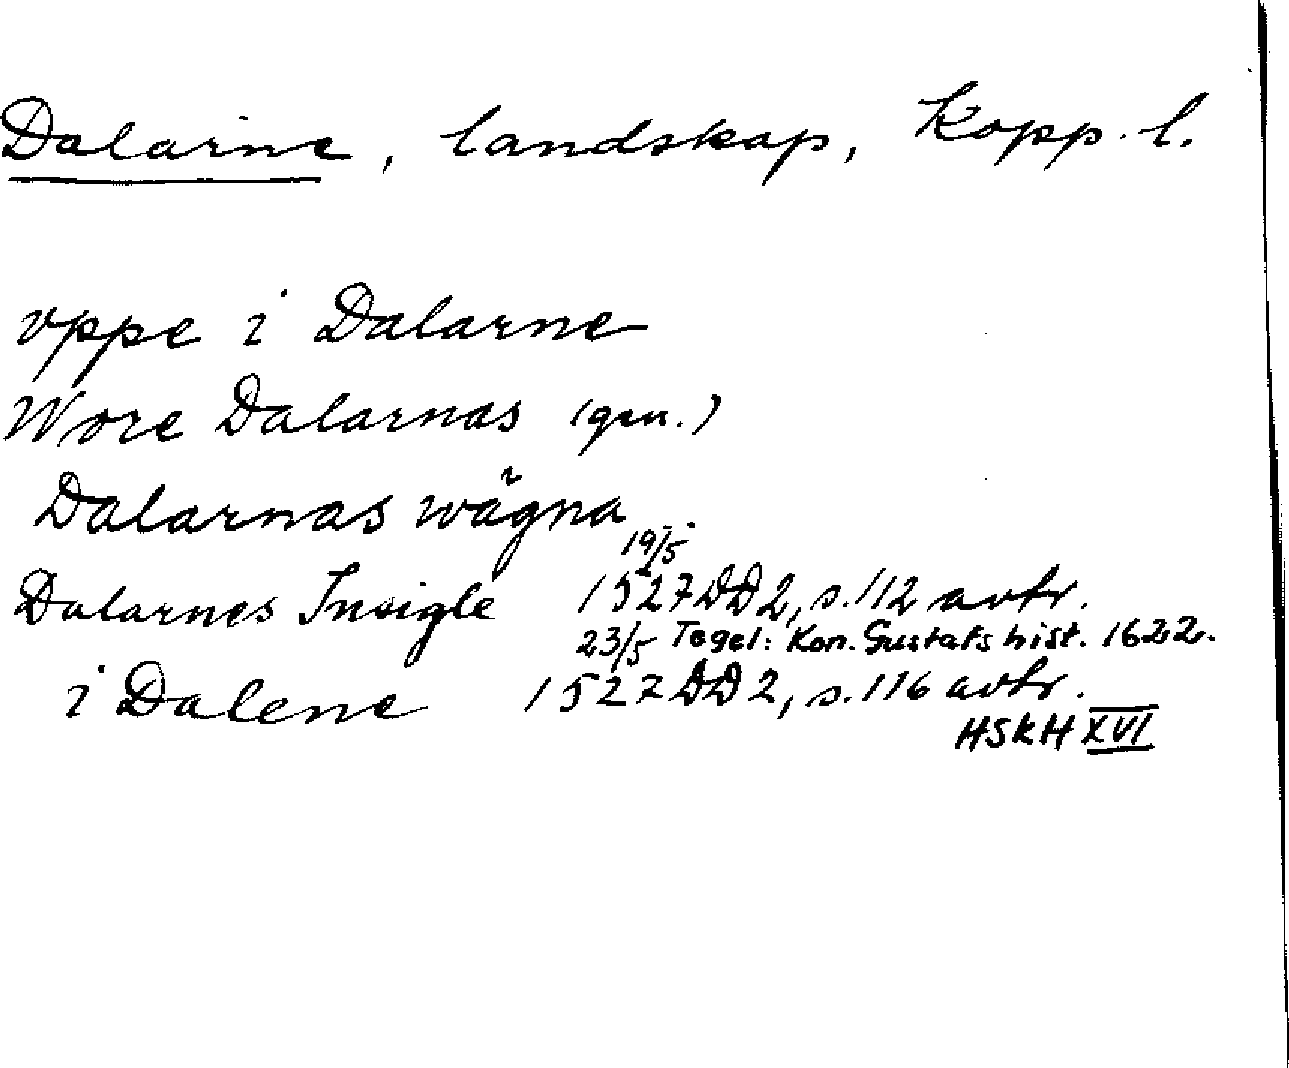 Dalarne, landskap, Kopp. l.
vppe i Dalarne
Wore Dalarnas (gen.)
Dalarnas wägna
19/5
Dalarnes Insigle 1527 DD2, s. 112 avtr.
23/5 Tegel: Kon. Gustafs hist. 1622.
i Dalene 1527 DD2, s. 116 avtr.
HSKH XVI